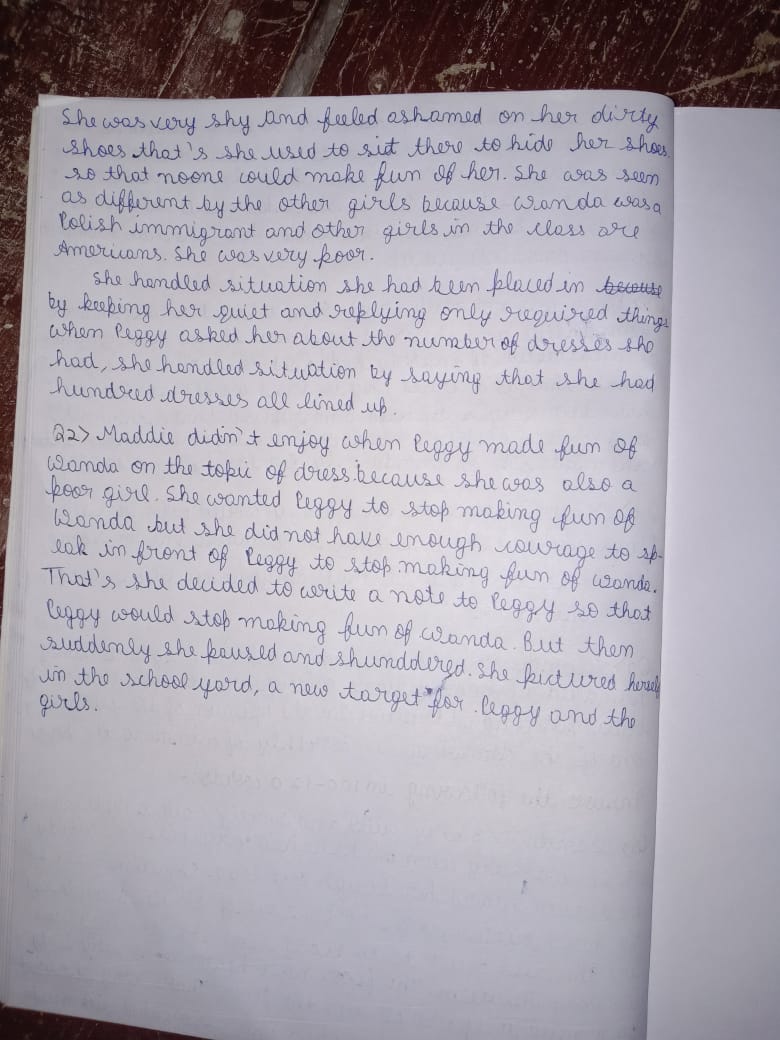 She was very shy and feeled ashamed on her dirty
shoes that's she used to sit there to hide her shoes
so that noone could make fun of her. She was seen
as different by the other girls because wanda was a
Polish immigrant and other girls in the class are
Americans. She was very poor.
She handled situation she had been placed in because
by keeping her quiet and replying only required things
when Peggy asked her about the number of dresses she
had, she handled situation by saying that she had
hundred dresses all lined up.
Q2> Maddie didn't enjoy when Peggy made fun of
wanda on the topic of dress because she was also a
poor girl. She wanted Peggy to stop making fun of
Wanda but she did not have enough courage to sp-
eak in front of Peggy to stop making fun of wanda.
That's she decided to write a note to Peggy so that
Peggy would stop making fun of wanda. But then
suddenly she paused and shunddered. She pictured herself
in the school yard, a new target for Peggy and the
girls.